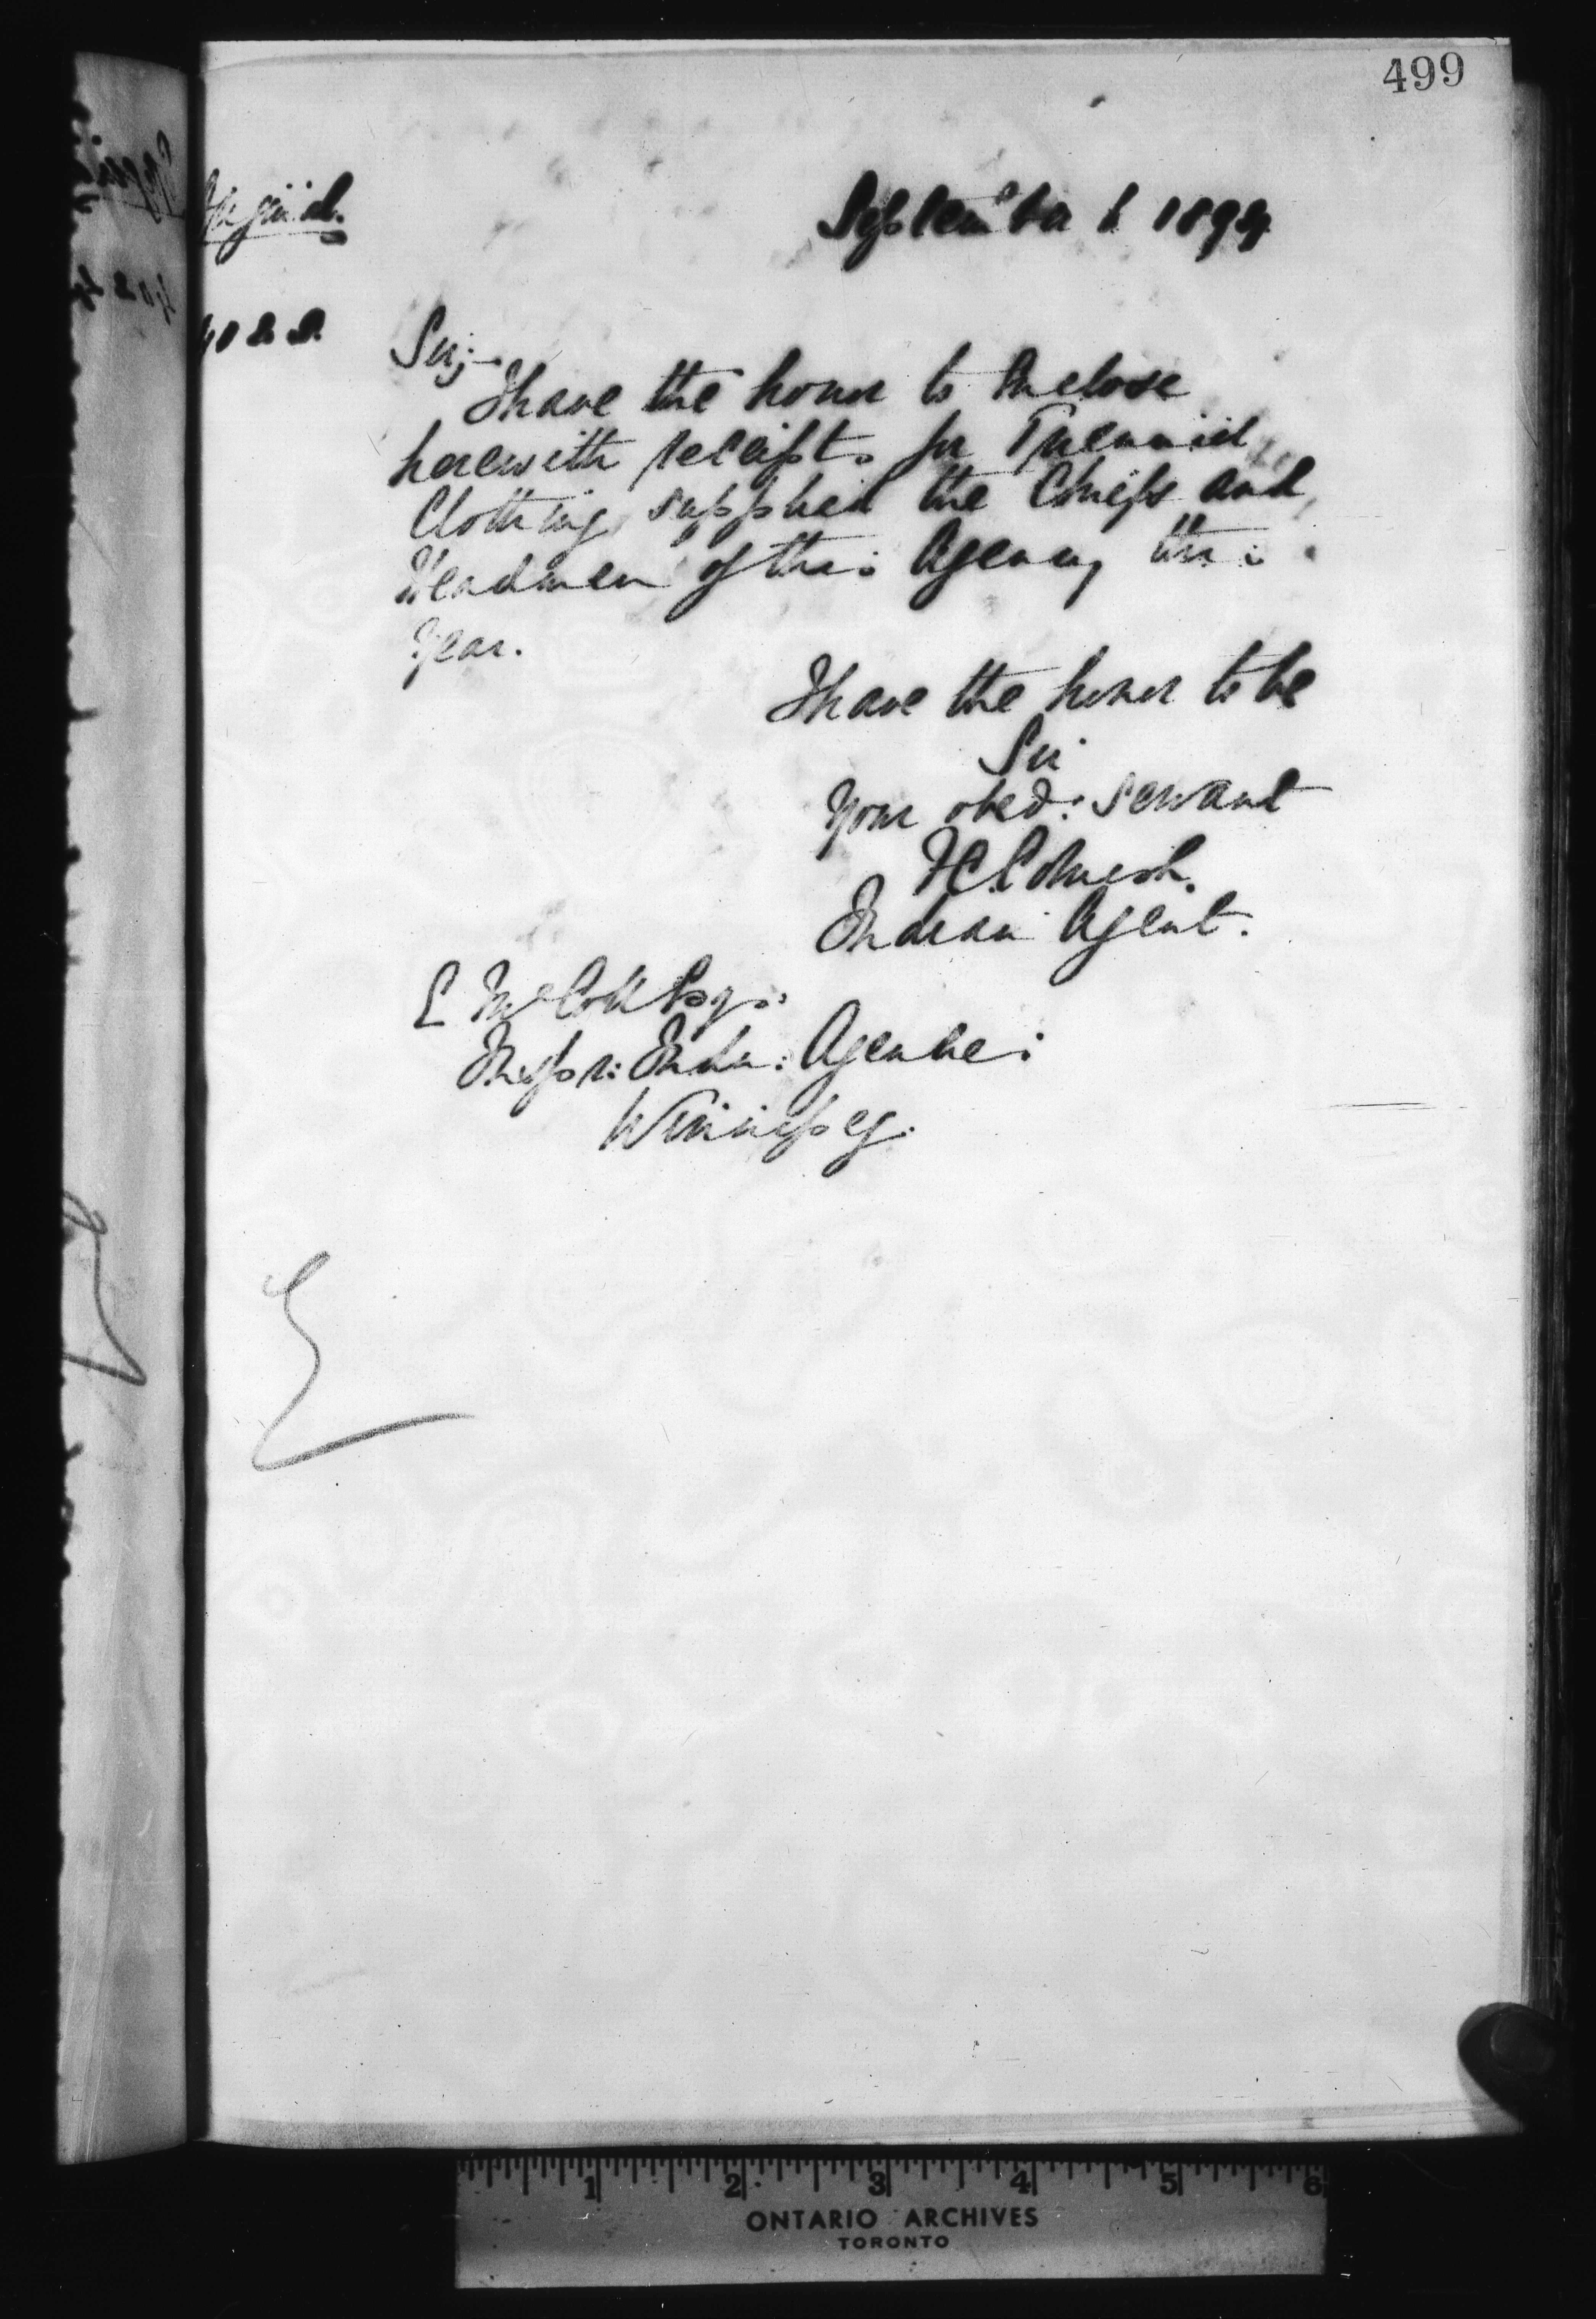 499
September 6 1894
Sir;-
I have the honor to Enclose
herewith receipts for Triennial
Clothing supplied the Chiefs and
Headmen of this Agency this
Year.
I have the honor to be
Sir
Your obed: servant
Indian Agent.
E McColl Esq:
Inspr: Indn: Agencies
Winnipeg.
1 2 3 4 5 6
ONTARIO ARCHIVES
TORONTO